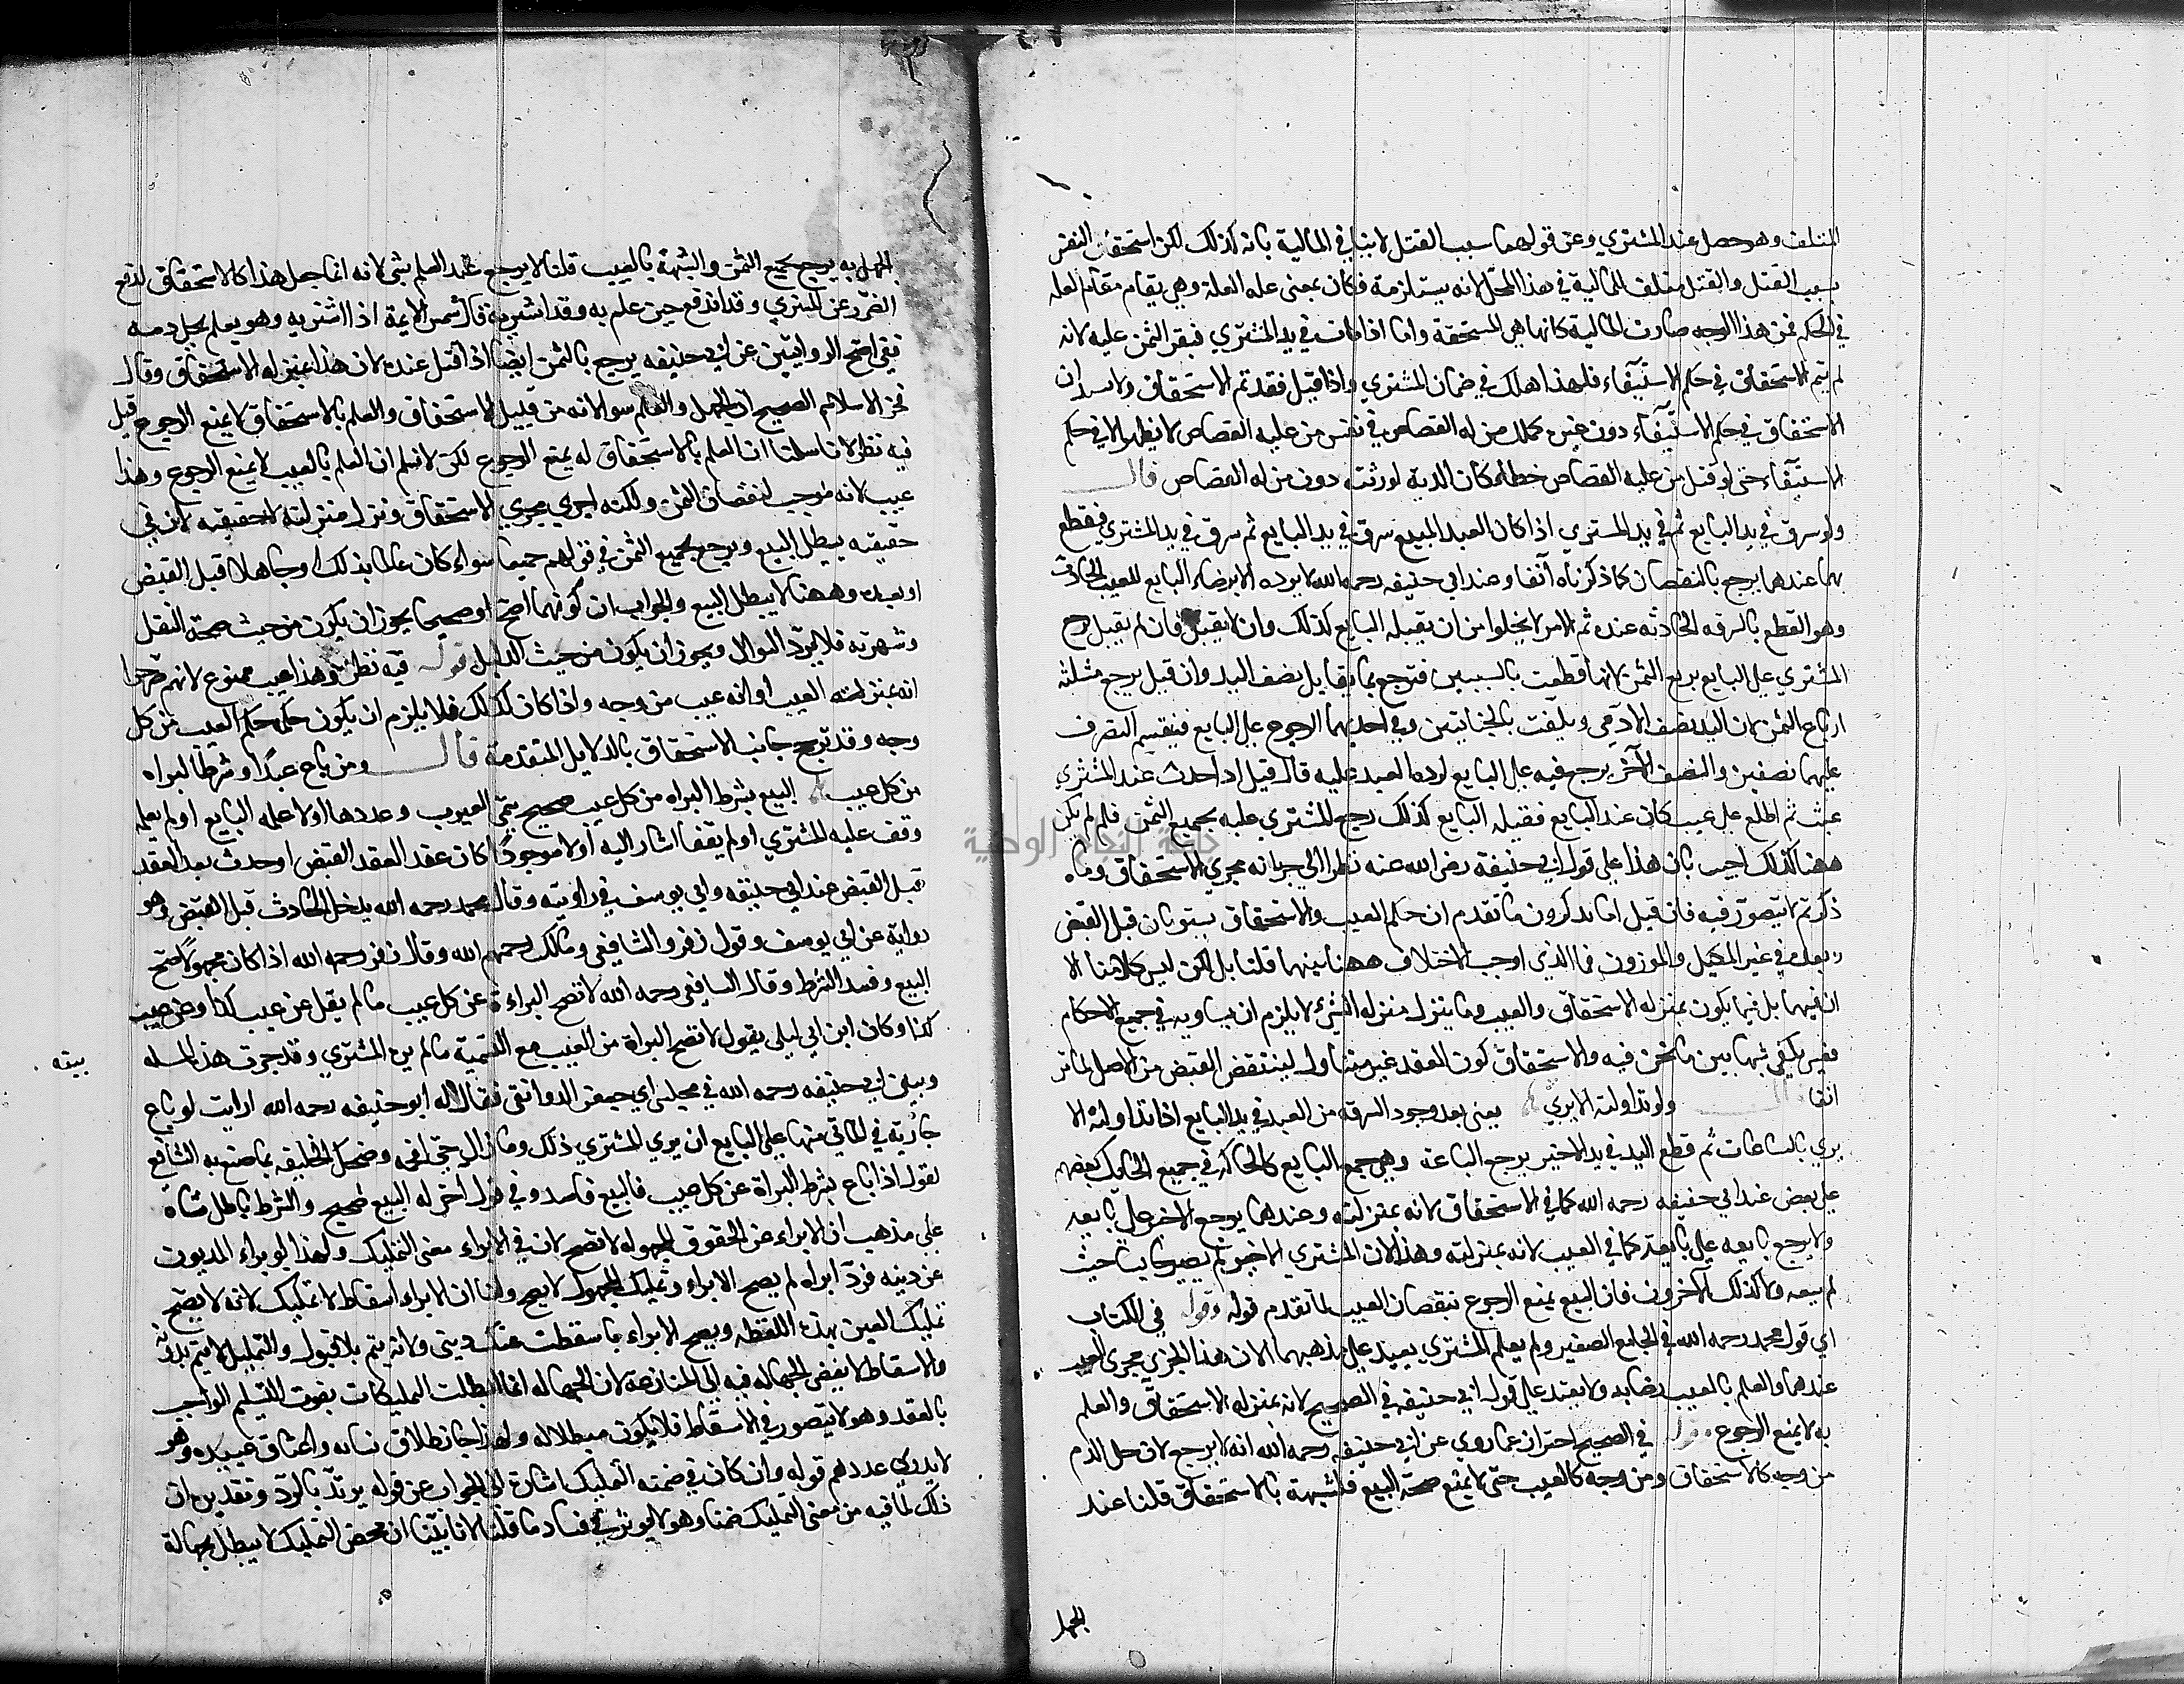 المتلف وهو حصل عند المشتري وعن قولهما سبب القتل لا ينافي المالية بانه كذلك لكن استحقاق النفس
بسبب القتل والقتل متلف للمالية في هذا المحل لانه يستلزمه فكان بمعنى علة العلة وهي يقام مقام العلة
في الحكم فمن هذا الوجه صارت المالية كانها هي المستحقة واما اذا مات في يد المشتري فيقر الثمن عليه لانه
لم يتم الاستحقاق في حكم الاستيفاء فلهذا هلك في ضمان المشتري واذا قتل فقد تم الاستحقاق ولا
الاستحقاق في حكم الاستيفاء دون غيره كملك من له القصاص في نفس من عليه القصاص لا يظهر الا في حكم
الاستيفاء حتى لو قتل من عليه القصاص خطا كان الدية لورثته دون من له القصاص قال
ولو سرق في يد البايع ثم في يد المشتري اذا كان العبد المبيع سرق في يد البايع ثم سرق في يد المشتري فقطع
بهما عندهما يرجع بالنقصان كما ذكرناه آنفا وعند ابي حنيفة رحمه الله لا يرده الا برضاء البايع للعيب الحادث
وهو القطع بالسرقة الحادثه عنده ثم الامر لا يخلوا من ان يقبله البايع كذلك وان لا يقبله فان لم يقبل رجع
المشتري على البايع بربع الثمن لانها قطعت بالسببين فترجع بما يقابل نصف اليد وان قبل يرجع بثلثه
ارباع الثمن لان اليد نصف الادمي وتلفت بالجنايتين وفي احديهما الرجوع على البايع فينقسم النصف
عليهما نصفين والنصف الآخر يرجع فيه على البايع لرده العبد عليه قال قيل اذا حدث عند المشتري
عيب ثم اطلع على عيب كان عند البايع فقبله البايع كذلك رجع المشتري عليه بجميع الثمن فلم لم يكن
ههنا كذلك اجيب بان هذا على قول ابي حنيفة رضي الله عنه نظرا الى جريانه مجرى الاستحقاق وما
ذكرتم لا يتصور فيه فان قيل اما تذكرون ما تقدم ان حكم العيب والاستحقاق يستويان قبل القبض
وبعده في غير المكيل والموزون فما الذي اوجب الاختلاف ههنا بينهما قلنا بل لكن ليس كلامنا الا
ان فيهما بل فيما يكون بمنزلة الاستحقاق والعيب وما ينزل منزلة الشيء لا يلزم ان يساويه في جميع الاحكام
يكفي شبها بين ما نحن فيه والاستحقاق كون العقد غير متناول لينتقض القبض من الاصل لما مر
انفا قال ولو تداولته الايدي يعني بعد وجود السرقه من العبد في يد البايع اذا تداولته الا
يدي بالبياعات ثم قطع اليد في يد الاخير يرجع الباعة كالحاكم في جميع بعضهم
على بعض عند ابي حنيفه رحمه الله كما في الاستحقاق لانه بمنزلته وعندهما يرجع الاخير على بايعه
ولا يرجع بايعه على بايعه كما في العيب لانه بمنزلته وهذا لان المشتري الاخير لم يصر حابسا حيث
لم يبعه ولا كذلك الآخرون فان البيع يمنع الرجوع بنقصان العيب لما تقدم قوله وقوله في الكتاب
اي قول محمد رحمه الله في الجامع الصغير ولم يعلم المشتري يفيد على مذهبهما لان هذا يجري مجرى العيب
عندهما والعلم بالعيب رضا به ولا يفيد على قول ابي حنيفه في الصحيح لانه بمنزلة الاستحقاق والعلم
به لا يمنع الرجوع قوله في الصحيح احتراز عما روي عن ابي حنيفه رحمه الله انه لا يرجع لان حل الدم
من وجه كالاستحقاق ومن وجه كالعيب حتى لا يمنع صحة البيع فلشبهه بالاستحقاق قلنا عند
الجهل
الجهل به يرجع بجميع الثمن والشبهة بالعيب قلنا لا يرجع عند العلم بشي لانه انما جعل هذا كالاستحقاق لدفع
الضرر عن المشتري وقد اندفع حين علم به وقد اشتريه قال شمس الايمة اذا اشتريه وهو يعلم بحل دمه
اصح الروايتين عن ابي حنيفه يرجع بالثمن ايضا اذا قتل عنده لان هذا بمنزله الاستحقاق وقال
فخر الاسلام الصحيح ان الجهل والعلم سوا لانه من قبيل الاستحقاق والعلم بالاستحقاق لا يمنع الرجوع قيل
فيه نظر لانا سلمنا ان العلم بالاستحقاق له يمنع الرجوع لكن لا نسلم ان العلم بالعيب لا يمنع الرجوع وهذا
عيب لانه موجب لنقصان الثمن ولكنه اجري مجرى الاستحقاق ونزل منزلته لا حقيقيه لان في
حقيقته يبطل البيع ويرجع بجميع الثمن في قولهم جميعا سواء كان عالما بذلك او جاهلا قبل القبض
او بعده وههنا لا يبطل البيع والجواب ان كونهما اصح او صحيحا يجوز ان يكون من حيث صحة النقل
وشهرته فلا يرد السوال ويجوز ان يكون من حيث الدليل قوله فيه نظر وهذا عيب ممنوع لانهم صرحوا
انه بمنزلة العيب او انه عيب من وجه واذا كان كذلك فلا يلزم ان يكون حكمه حكم العيب من كل
وجه وقد ترجح جانب الاستحقاق بالدلايل المتقدمة قال ومن باع عبدا وشرط البراه
من كل عيب البيع بشرط البراه من كل عيب صحيح سمى العيوب وعددها اولا علمه البايع او لم يعلمه
وقف عليه المشتري او لم يقف اشار اليه او لا موجودا كان عند العقد القبض او حدث بعد العقد
قبل القبض عند ابي حنيفه وابي يوسف في راويته وقال محمد رحمه الله لا يدخل الحادث قبل القبض وهو
رواية عن ابي يوسف وقول زفر والشافعي ومالك رحمهم الله وقال زفر رحمه الله اذا كان مجهولا صح
البيع وفسد الشرط وقال الشافعي رحمه الله لا تصح البراءة عن كل عيب ما لم يقل عن عيب كذا وعن عيب
كذا وكان ابن ابي ليلى يقول لا تصح البراة من العيب مع التسمية ما لم يره المشتري وقد جرت هذه المسله بينه
وبين ابي حنيفه رحمه الله في مجلس ابي جعفر الدوانقي فقال له ابو حنيفه رحمه الله ارايت لو باع
جارية في الماتي منها عيب على البايع ان يري المشتري ذلك وما زال حتى افحمه وضحك الخليفه بما صنع به الشافعي
لقوله اذا باع بشرط البراة عن كل عيب فالبيع فاسد وفي قول آخر له البيع صحيح والشرط باطل بناء
على مذهب ان الابراء عن الحقوق المجهوله لا تصح لان في الابراء معنى التمليك ولهذا لو براء المديون
عن دينه فرد ابراه لم يصح الابراء وتمليك المجهول لا يصح ولنا ان الابراء اسقاط لا تمليك لانه لا يصح
تمليك العين بهذه اللفظه ويصح الابراء باسقطت عنك ديني ولانه يتم بلا قبول والتمليك لا يتم بدونه
والاسقاط لا يفضي الجهاله فيه الى المنازعة لان الجهاله انما ابطلت التمليكات بفوت التسليم الواجب
بالعقد وهو لا يتصور في الاسقاط فلا يكون مبطلا له ولهذا جاز طلاق نسائه واعتاق عبيده وهو
لا يدري عددهم قوله وان كان في ضمنه التمليك اشارة الى الجواب عن قوله يرتد بالرد وتقديره ان
ذلك لما فيه من معنى التمليك ضمنا وهو لا يوثر في فساد ما قلنا لانا بينا ان محض التمليك لا يبطل بجهالة